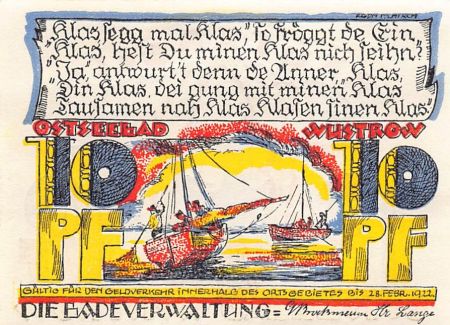 "Klas segg mal Klas", so fröggt de Ein,
"Klas, hest Du minen Klas nich seihn?"
"Ja", antwurt't denn de Anner, "Klas,
Din Klas, dei gung mit minen Klas
Tausamen nah Klas Klasen sinen Klas."
OSTSEEBAD WUSTROW
10 10
PF PF
GÜLTIG FÜR DEN GELDVERKEHR INNERHALB DES ORTSGEBIETES BIS 28. FEBR. 1922.
DIE BADEVERWALTUNG=